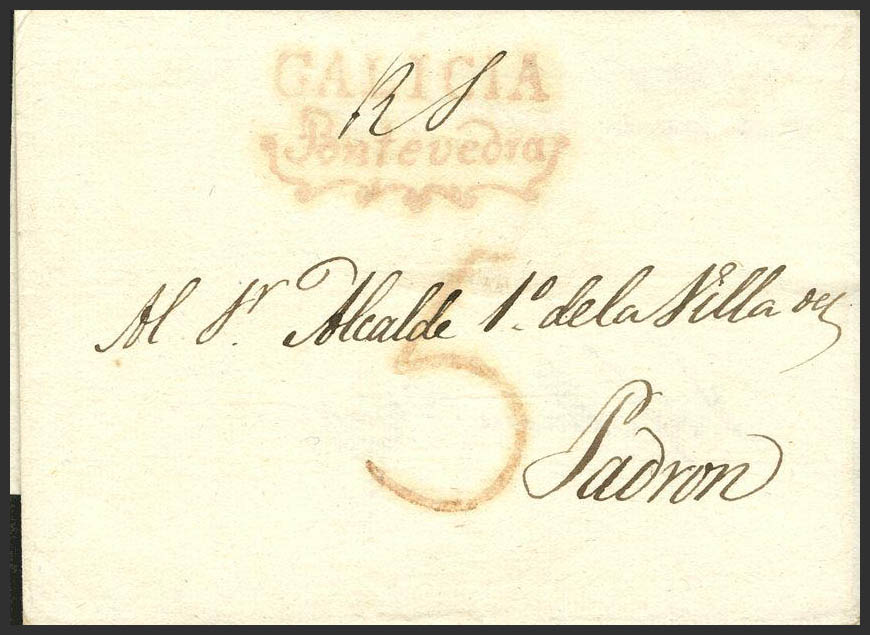 GALICIA
R S
Pontevedra
Al Sr. Alcalde 1º de la Villa de
5
Padron